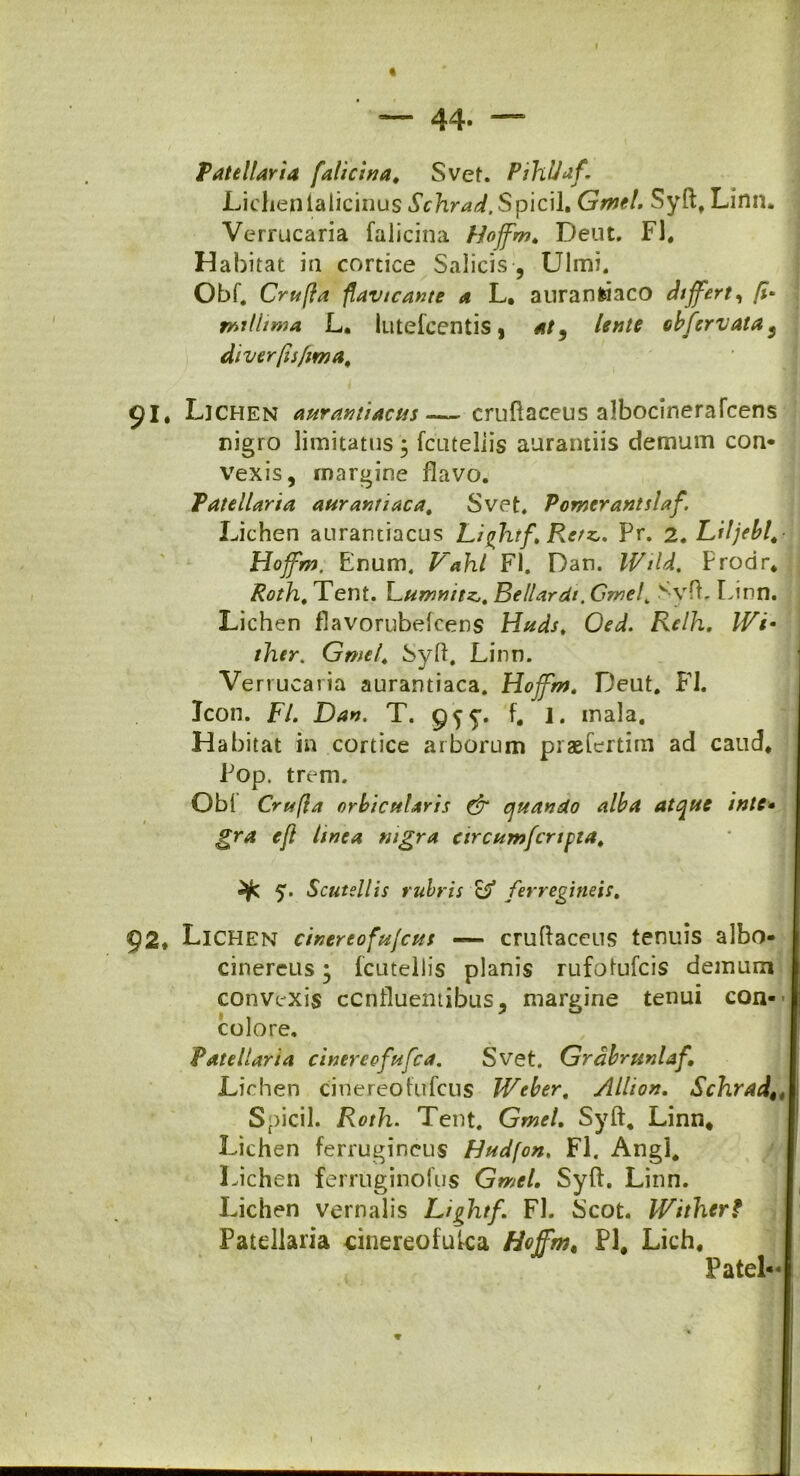 — 44. —
Patellaria ſalicina. Svet. Pihllaf.
Lichen ſalicinus Schrad. Spicil. Gmel. Syſt. Linn.
Verrucaria ſalicina Hoffm. Deut. Fl.
Habitat in cortice Salicis, Ulmi.
Obſ. Cruſta flavicante a L. aurantiaco differt, ſi-
millima L. luteſcentis, at, lente obſervata,
diverſisſima.
91. LICHEN aurantiacus — cruſtaceus albocineraſcens
nigro limitatus; ſcutellis aurantiis demum con-
vexis, margine flavo.
Patellaria aurantiaca. Svet. Pomerantslaf.
Lichen aurantiacus Lightf. Retz. Pr. 2. Liljebl.
Hoffm. Enum. Vahl Fl. Dan. Wild. Prodr.
Roth. Tent. Lumnitz. Bellardi. Gmel. Syſt. Linn.
Lichen flavorubeſcens Huds. Oed. Relh. Wi-
ther. Gmel. Syſt. Linn.
Verrucaria aurantiaca. Hoffm. Deut. Fl.
Icon. Fl. Dan. T. 955. f. 1. mala.
Habitat in cortice arborum præſertim ad caud.
Pop. trem.
Obſ Cruſta orbicularis & quando alba atque inte-
gra eſt linea nigra circumſcripta.
* 5. Scutellis rubris & ferregineis.
92. LICHEN cinereofuſcus — cruſtaceus tenuis albo-
cinereus; ſcutellis planis rufofuſcis demum
convexis confluentibus, margine tenui con-
colore.
Patellaria cinereofuſca. Svet. Gråbrunlaf.
Lichen cinereofuſcus Weber. Allion. Schrad.
Spicil. Roth. Tent. Gmel. Syſt. Linn.
Lichen ferrugineus Hudſon. Fl. Angl.
Lichen ferruginoſus Gmel. Syſt. Linn.
Lichen vernalis Lightf. Fl. Scot. Wither?
Patellaria cinereofuſca Hoffm. Pl. Lich.
Patel-